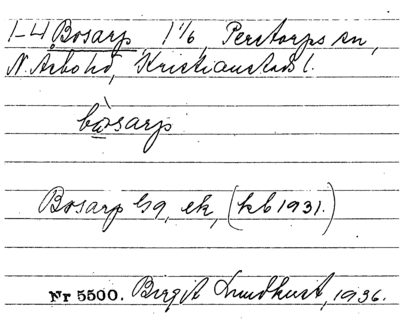 1-4 Bosarp, 1 1/6, Perstorps sn,
N. Åsbo hd, Kristianstads l.
bòsarp
Bosarp Gg, ek, (kb 1931.)
Nr 5500. Birgit Lundkvist, 1936.